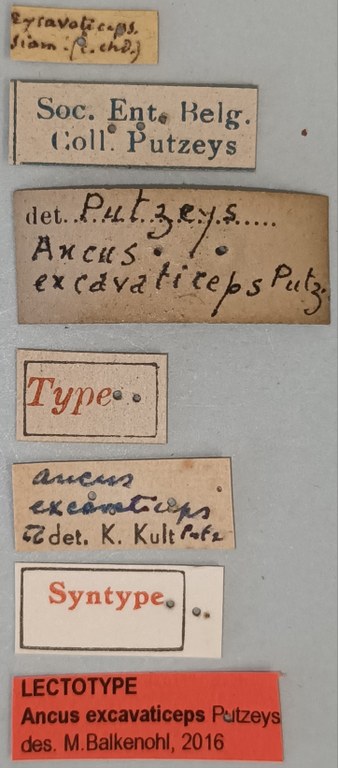 excavaticeps.
Siam. (e. chd.)
Soc. Ent. Belg.
Coll. Putzeys
det. Putzeys
Ancus
excavaticeps Putz.
Type
ancus
excavaticeps
det. K. Kult Putz
Syntype
LECTOTYPE
Ancus excavaticeps Putzeys
des. M.Balkenohl, 2016